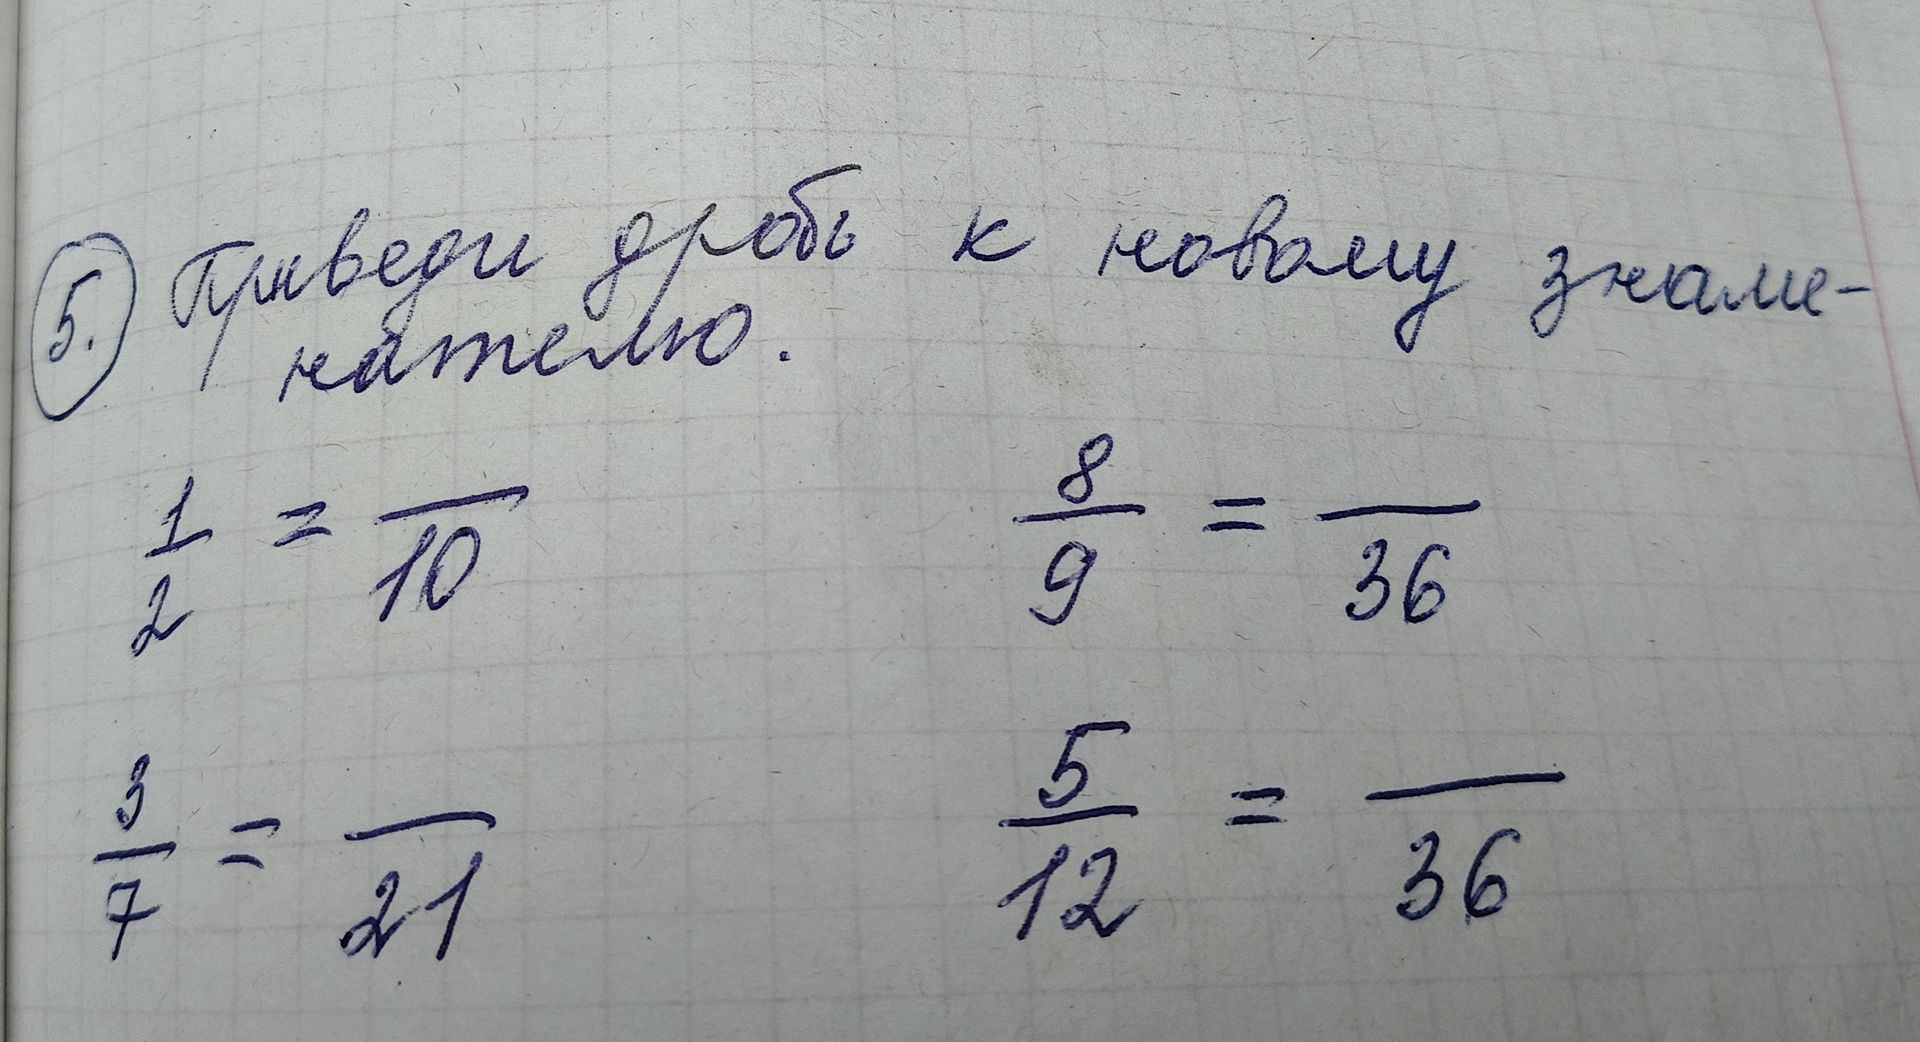 5. Приведи дробь к новому знаме-
нателю.
1/2 = /10
8/9 = /36
3/7 = /21
5/12 = /36